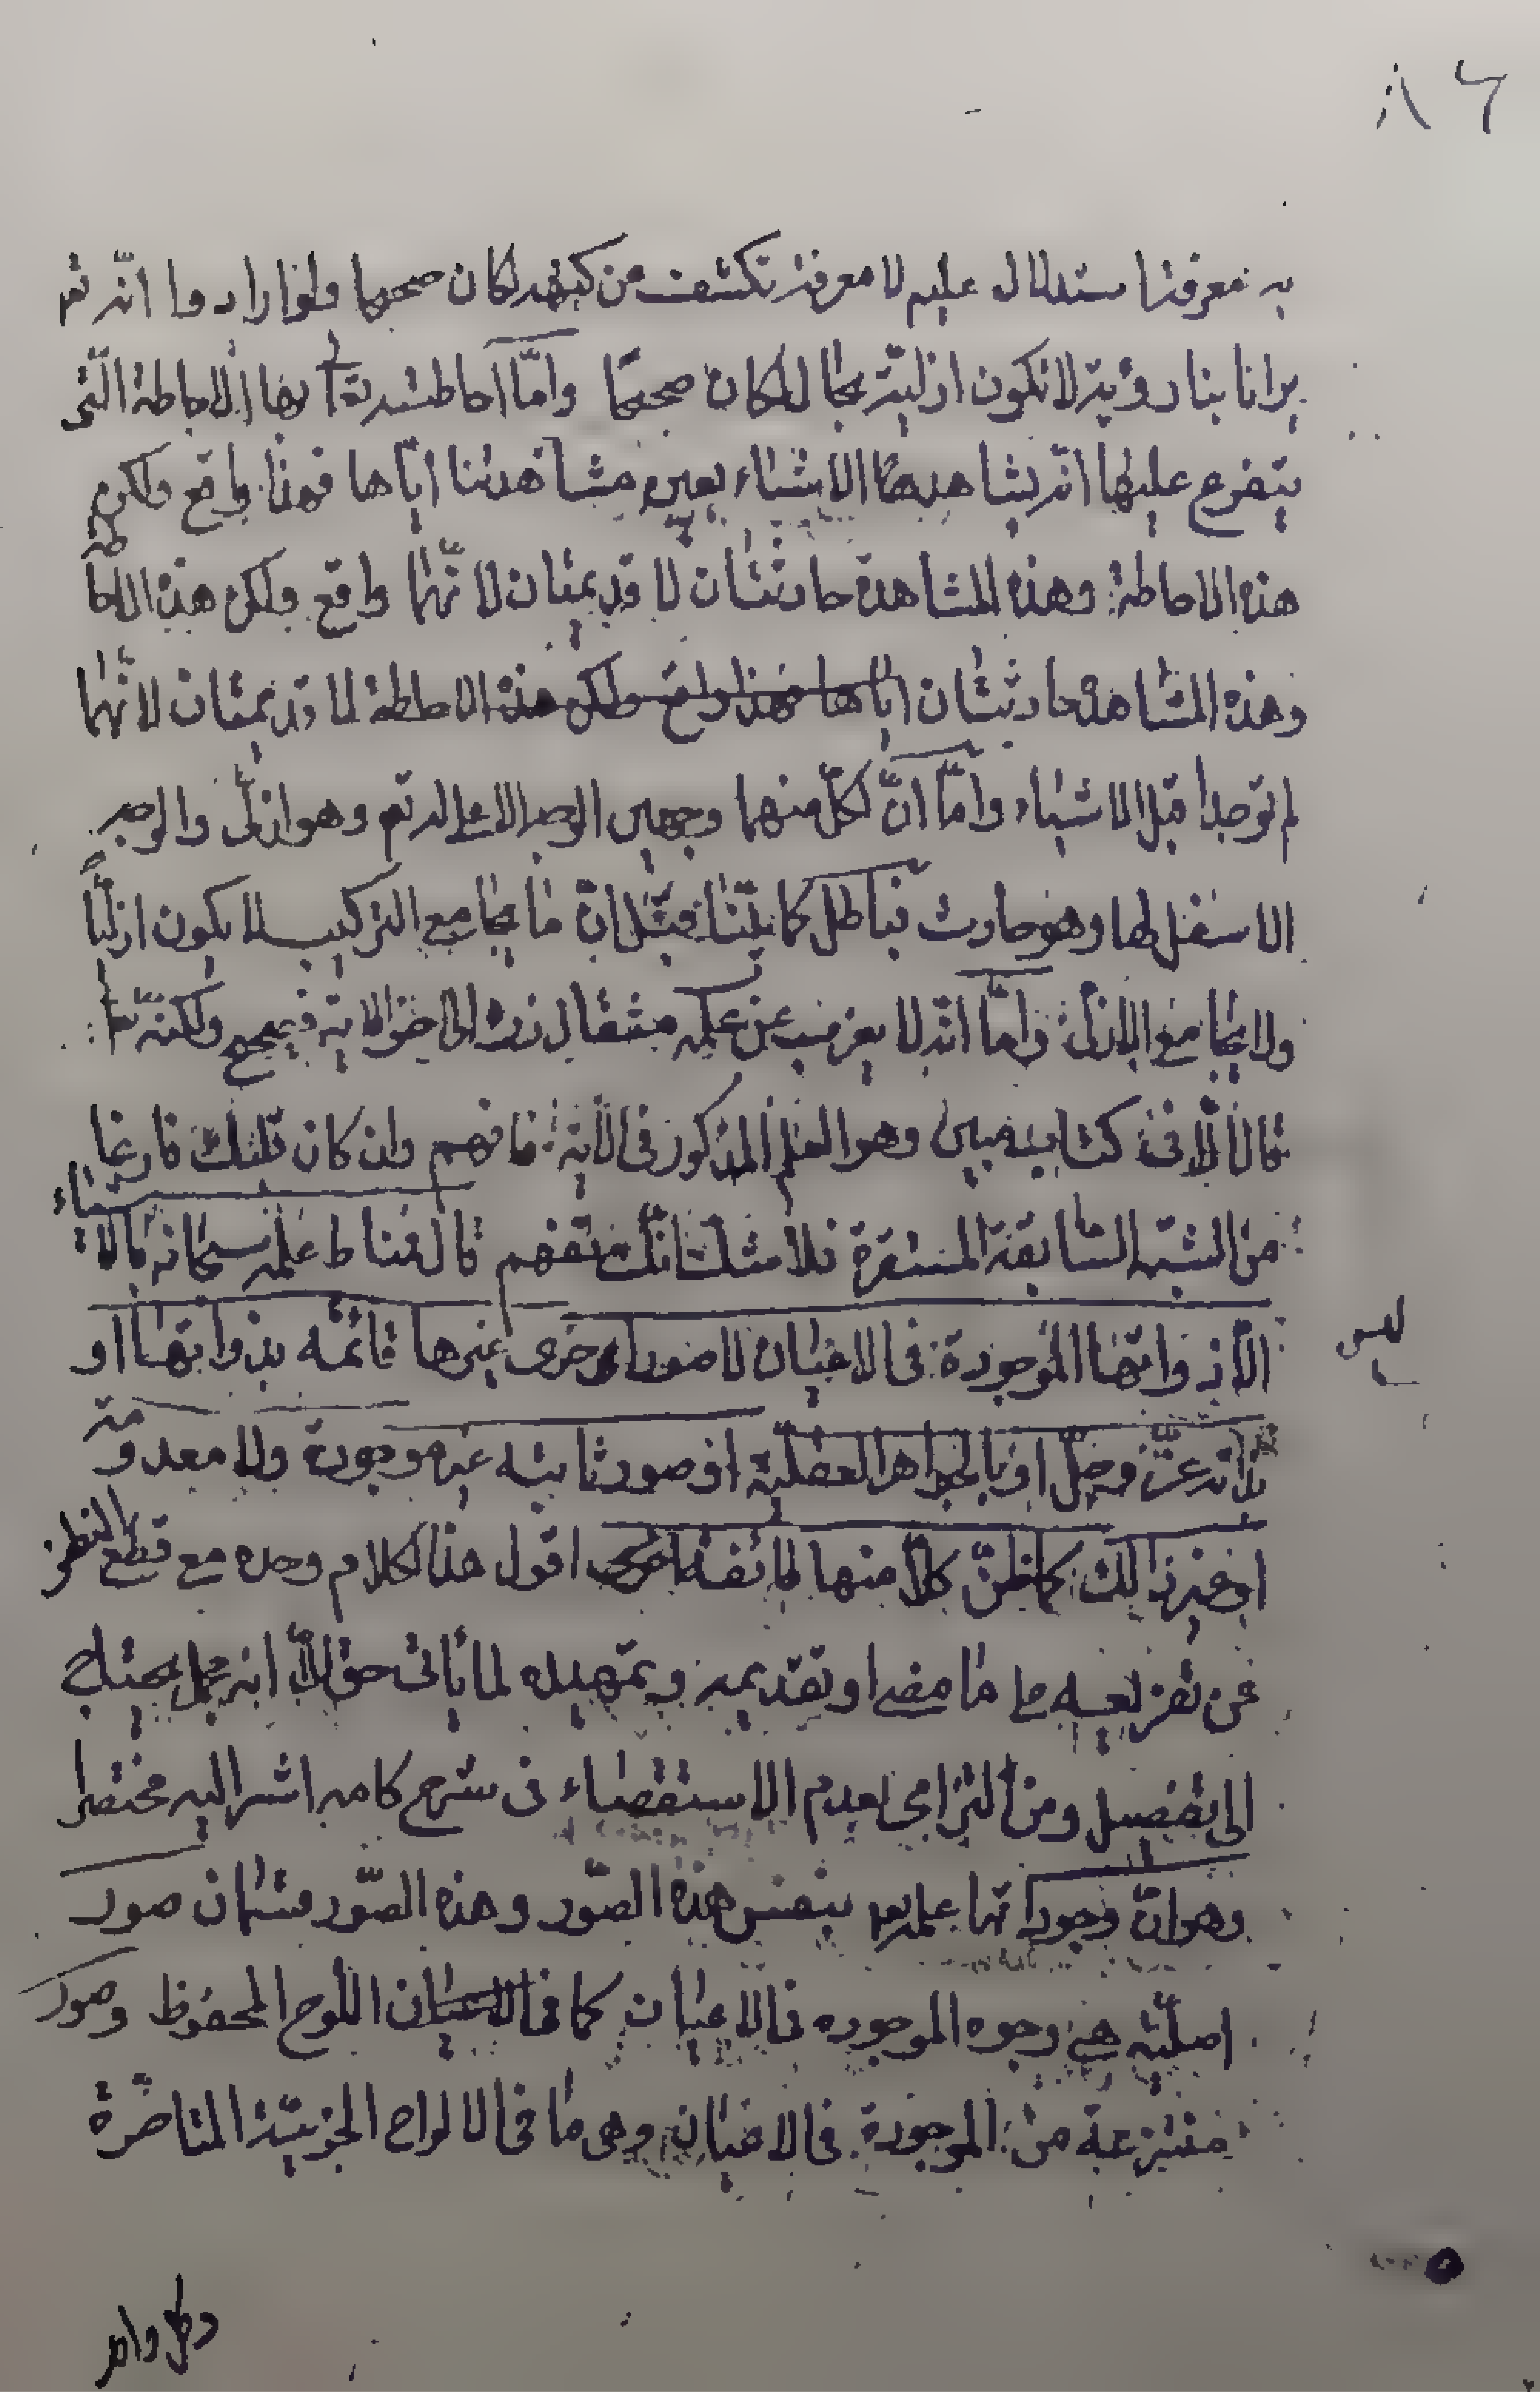 ٨٦
به معرفة استدلال عليه لا معرفة تكشف من كنهه لكان صحيحا ولو ارادوا انّه تع
يرانا بنا رؤية لا تكون ازلية بحال لكان صحيحًا وامّا احاطته تع بها الاحاطة الّتى
يتفرع عليها انّه يشاهد بها الاشياء بعين مشاهدتنا ايّاها فهذا واقع ولكن
هذه الاحاطة وهذه المشاهدة حادثتان لا قديمتان لانّهما واقع ولكن هذه الاحاطة
وهذه المشاهدة حادثتان ايّاها فهذا واقع ولكن هذه الاحاطة لا قديمتان لانّهما
لم توجدا قبل الاشياء وامّا انّ لكلّ منهما وجهين الوجه الاعلى له تع وهو ازلىّ والوجه
الاسفل لها وهو حادث فباطل كما بيّنّا قبل انّ ما يجامع التركيب لا يكون ازليّاً
ولا يجامع الازلى وامّا انّه لا يعزب عن علمه مثقال ذرة الى اخر الاية فصحيح ولكنّه تعا
قال الّا فى كتاب مبين وهو العلم المذكور فى الآية فافهم وان كان قلبك فارغا
من الشبه السابقة المستقرة فلا شك انّك ستفهم قال فمناط علمه سبحانه بالاشياء
الّا ذواتها الموجودة فى الاعيان لا صور اخرى غيرها قائمة بذواتها او
ليس
بذاته عزّ وجلّ او بالجواهر العقليّة او صور ثابتة غير موجودة ولا معدومة
او غير ذالك كما ظنّ كلّاً منها طائفة اقول هذا الكلام وحده مع قطع النظر
عن تفريعه على ما مضى او تقديمه وتمهيده لما يأتى حق الّا انه مجمل يحتاج
الى تفصيل ومن التزامى لعدم الاستقصاء فى شرح كلامه اشير اليه مختصرا
وهو انّ وجوداتها علمه تع بنفس هذه الصّور وهذه الصّور قسمان صور
اصليّة هى وجوه الموجوده فى الاعيان كما فى الاعيان اللّوح المحفوظ وصور
منتزعة من الموجودة فى الاعيان وهى ما فى الالواح الجزئيّة المتاخّرة